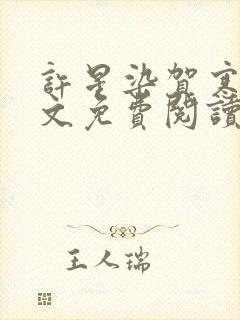 許星染賀寒
文免費閱讀
王人瑞